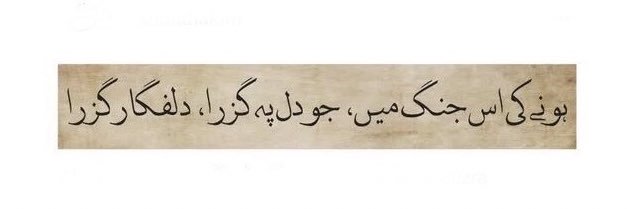 ہونے کی اس جنگ میں، جو دل پہ گزرا، دلفگار گزرا